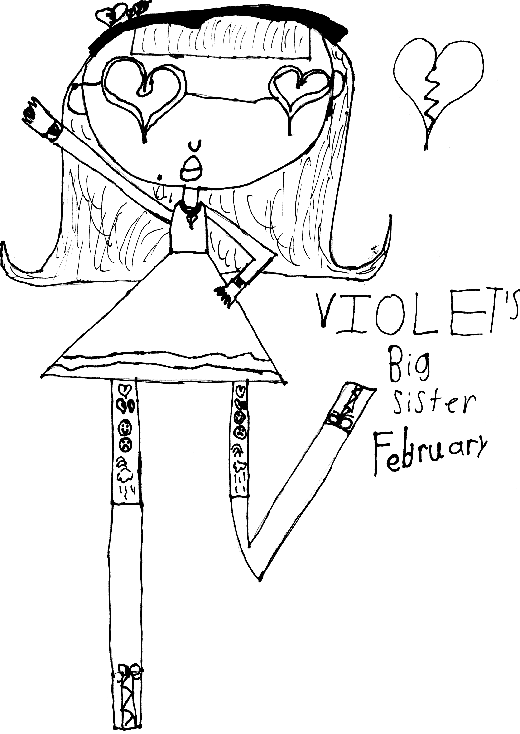 VIOLET'S
Big
sister
February